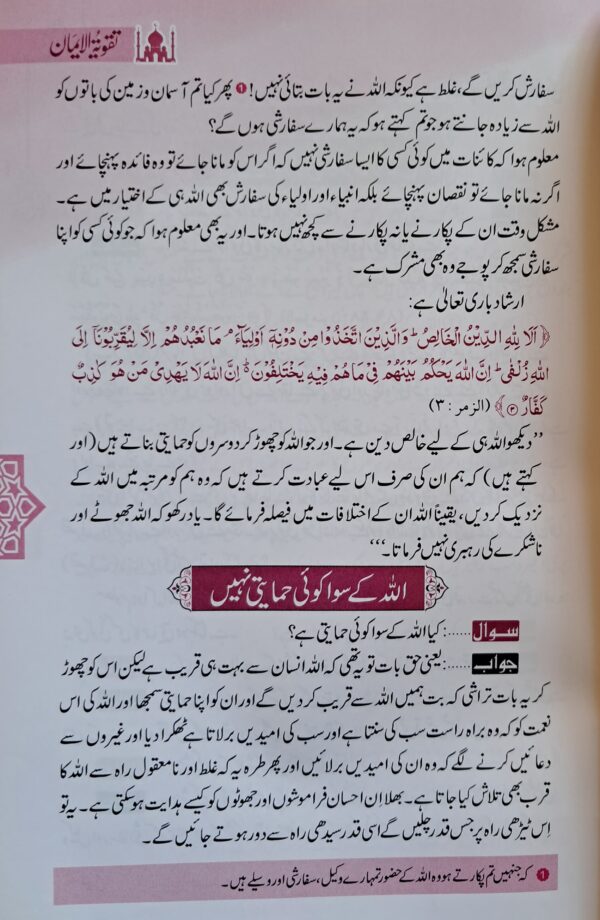 تقویۃ الایمان
سفارش کریں گے، غلط ہے کیونکہ اللہ نے یہ بات بتائی نہیں! ❶ پھر کیا تم آسمان و زمین کی باتوں کو
اللہ سے زیادہ جانتے ہو جو تم کہتے ہو کہ یہ ہمارے سفارشی ہوں گے؟
معلوم ہوا کہ کائنات میں کوئی کسی کا ایسا سفارشی نہیں کہ اگر اس کو مانا جائے تو وہ فائدہ پہنچائے اور
اگر نہ مانا جائے تو نقصان پہنچائے بلکہ انبیاء اور اولیاء کی سفارش بھی اللہ ہی کے اختیار میں ہے۔
مشکل وقت ان کے پکارنے یا نہ پکارنے سے کچھ نہیں ہوتا۔ اور یہ بھی معلوم ہوا کہ جو کوئی کسی کو اپنا
سفارشی سمجھ کر پوجے وہ بھی مشرک ہے۔
ارشاد باری تعالیٰ ہے:
﴿اَلَا لِلّٰهِ الدِّيْنُ الْخَالِصُ ؕ وَالَّذِيْنَ اتَّخَذُوْا مِنْ دُوْنِهٖۤ اَوْلِيَآءَ ۘ مَا نَعْبُدُهُمْ اِلَّا لِيُقَرِّبُوْنَاۤ اِلَى
اللّٰهِ زُلْفٰى ؕ اِنَّ اللّٰهَ يَحْكُمُ بَيْنَهُمْ فِيْ مَا هُمْ فِيْهِ يَخْتَلِفُوْنَ ؕ۬ اِنَّ اللّٰهَ لَا يَهْدِيْ مَنْ هُوَ كٰذِبٌ
كَفَّارٌ ۝۳﴾ (الزمر: ۳)
’’دیکھو اللہ ہی کے لیے خالص دین ہے۔ اور جو اللہ کو چھوڑ کر دوسروں کو حمایتی بناتے ہیں (اور
کہتے ہیں) کہ ہم ان کی صرف اس لیے عبادت کرتے ہیں کہ وہ ہم کو مرتبہ میں اللہ کے
نزدیک کر دیں، یقیناً اللہ ان کے اختلافات میں فیصلہ فرمائے گا۔ یاد رکھو کہ اللہ جھوٹے اور
ناشکرے کی رہبری نہیں فرماتا۔‘‘‘
اللہ کے سوا کوئی حمایتی نہیں
سوال ......: کیا اللہ کے سوا کوئی حمایتی ہے؟
جواب ......: یعنی حق بات تو یہ تھی کہ اللہ انسان سے بہت ہی قریب ہے لیکن اس کو چھوڑ
کر یہ بات تراشی کہ بت ہمیں اللہ سے قریب کر دیں گے اور ان کو اپنا حمایتی سمجھا اور اللہ کی اس
نعمت کو کہ وہ براہ راست سب کی سنتا ہے اور سب کی امیدیں بر لاتا ہے ٹھکرا دیا اور غیروں سے
دعائیں کرنے لگے کہ وہ ان کی امیدیں بر لائیں اور پھر طرہ یہ کہ غلط اور نامعقول راہ سے اللہ کا
قرب بھی تلاش کیا جاتا ہے۔ بھلا ان احسان فراموشوں اور جھوٹوں کو کیسے ہدایت ہو سکتی ہے۔ یہ تو
اس ٹیڑھی راہ پر جس قدر چلیں گے اسی قدر سیدھی راہ سے دور ہوتے جائیں گے۔
❶ کہ جنہیں تم پکارتے ہو وہ اللہ کے حضور تمہارے وکیل، سفارشی اور وسیلے ہیں۔